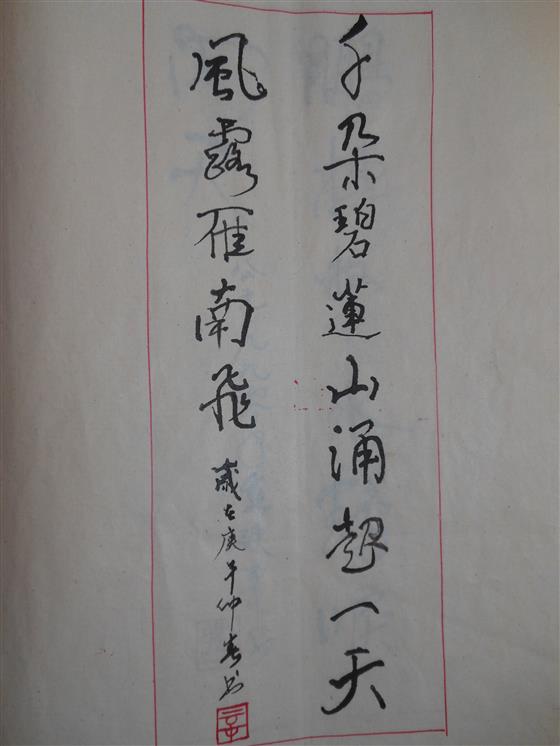 千朵碧蓮山涌起一天
風露雁南飛
歲在庚午仲春书